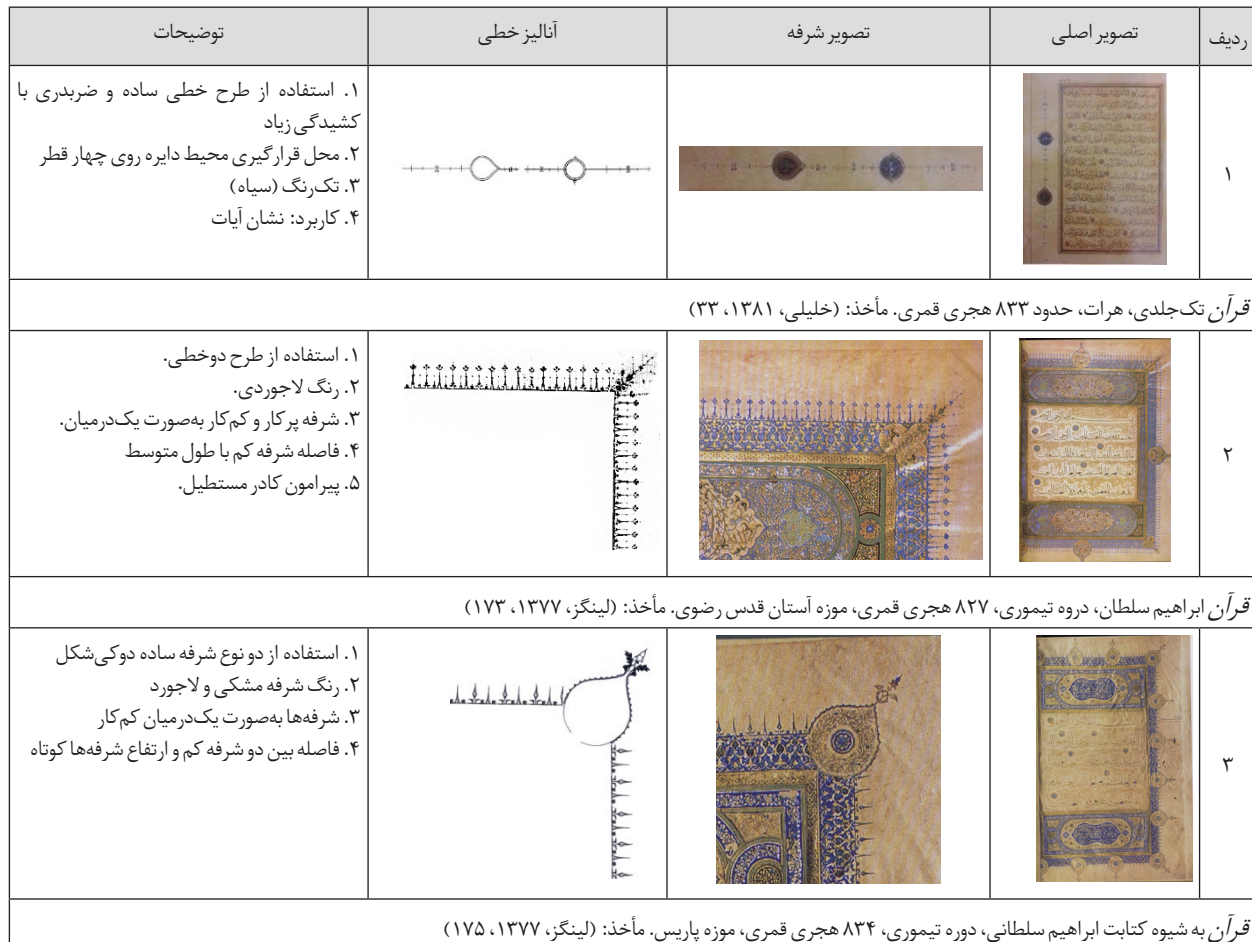 ردیف
تصویر اصلی
تصویر شرفه
آنالیز خطی
توضیحات
۱
۱. استفاده از طرح خطی ساده و ضربدری با
کشیدگی زیاد
۲. محل قرارگیری محیط دایره روی چهار قطر
۳. تک‌رنگ (سیاه)
۴. کاربرد: نشان آیات
قرآن تک‌جلدی، هرات، حدود ۸۳۳ هجری قمری. مأخذ: (خلیلی، ۱۳۸۱، ۳۳)
۲
۱. استفاده از طرح دوخطی.
۲. رنگ لاجوردی.
۳. شرفه پرکار و کم‌کار به‌صورت یک‌درمیان.
۴. فاصله شرفه کم با طول متوسط
۵. پیرامون کادر مستطیل.
قرآن ابراهیم سلطان، دروه تیموری، ۸۲۷ هجری قمری، موزه آستان قدس رضوی. مأخذ: (لینگز، ۱۳۷۷، ۱۷۳)
۳
۱. استفاده از دو نوع شرفه ساده دوکی‌شکل
۲. رنگ شرفه مشکی و لاجورد
۳. شرفه‌ها به‌صورت یک‌درمیان کم‌کار
۴. فاصله بین دو شرفه کم و ارتفاع شرفه‌ها کوتاه
قرآن به شیوه کتابت ابراهیم سلطانی، دوره تیموری، ۸۳۴ هجری قمری، موزه پاریس. مأخذ: (لینگز، ۱۳۷۷، ۱۷۵)